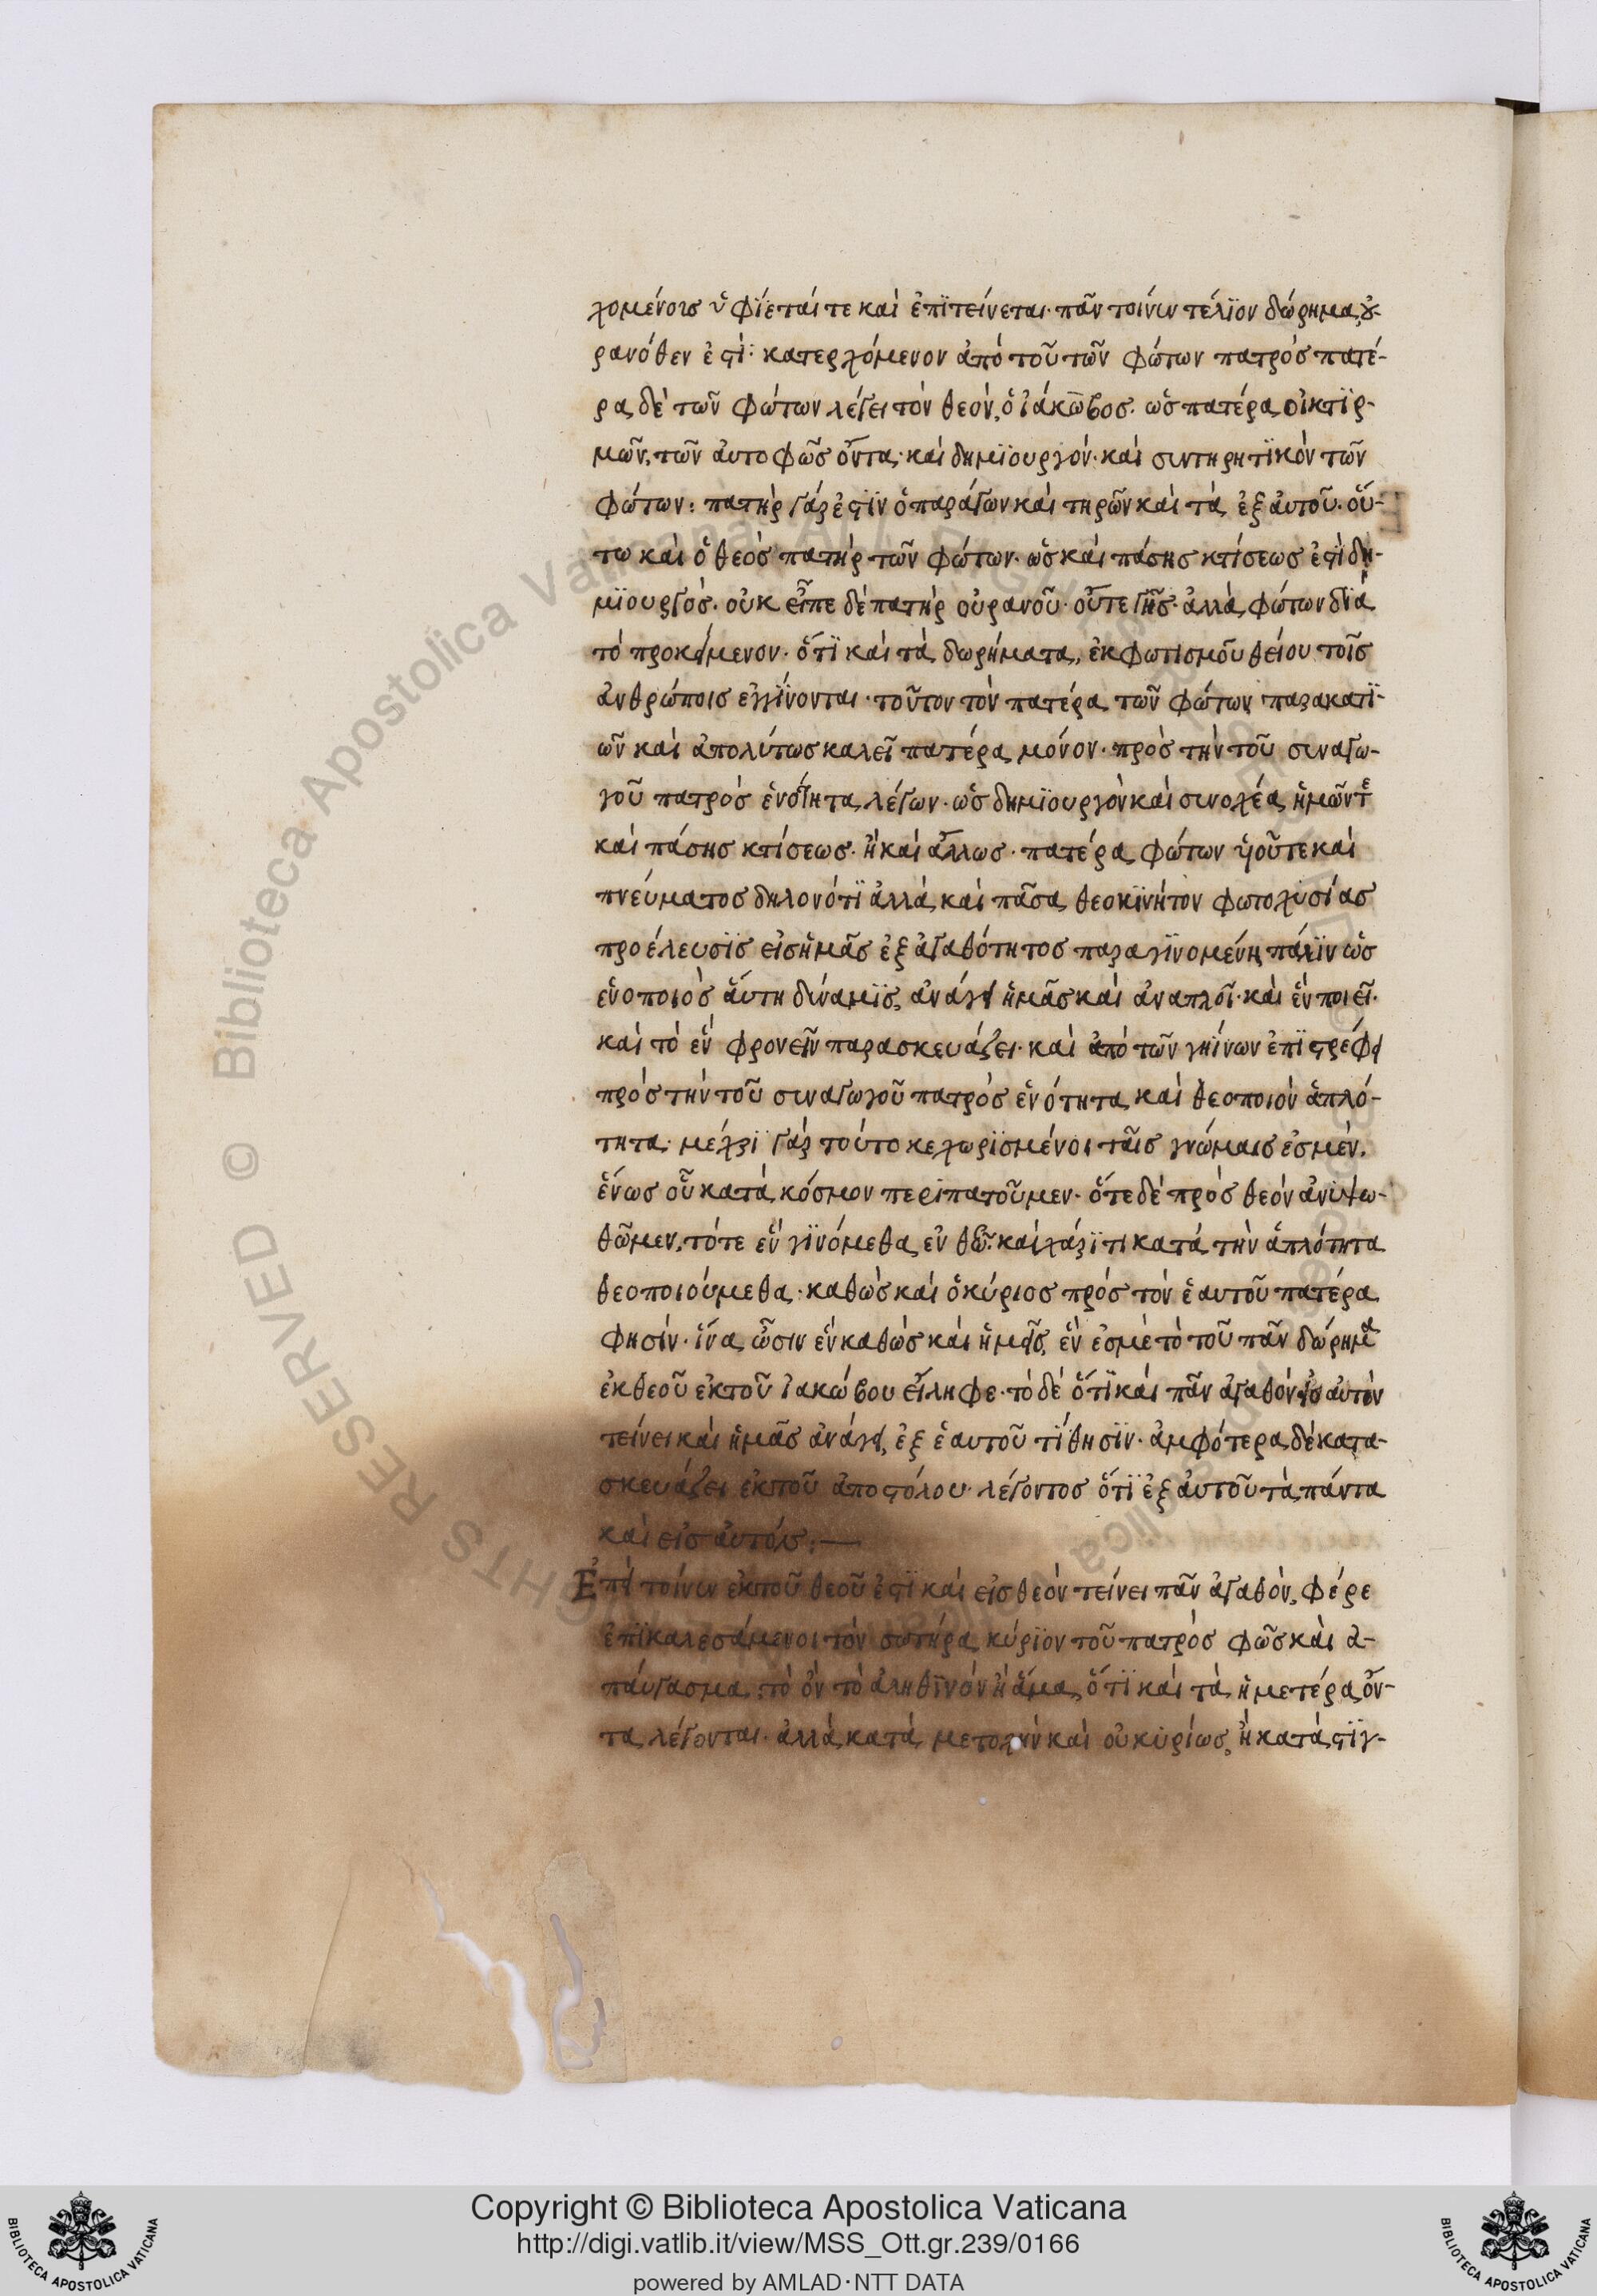 χομένοις ὑφΐεταί τε καὶ ἐπϊτείνεται· πᾶν τοίνυν τέλϊον δώρημα, οὐ-
ρανόθεν ἐστὶ· κατερχόμενον ἀπὸ τοῦ τῶν φώτων πατρός πατέ-
ρα δὲ τῶν φώτων λέγει τὸν θεόν, ὁ ἰάκωβος. ὡς πατέρα οἰκτϊρ-
μῶν, τῶν ἀυτοφῶς ὄντα· καὶ δημϊουργόν· καὶ συντηρητϊκὸν τῶν
φώτων: πατὴρ γάρ ἐστϊν ὁ παράγων καὶ τηρῶν καὶ τὰ ἐξ ἀυτοῦ. οὕ-
τω καὶ ὁ θεὸς πατὴρ τῶν φώτων· ὡς καὶ πάσης κτίσεως ἐστὶ δη-
μϊουργός. οὐκ εἶπε δὲ πατὴρ οὐρανοῦ· οὔτε γῆς· ἀλλὰ φώτων δϊὰ
τὸ προκείμενον· ὅτϊ καὶ τὰ δωρήματα, ἐκ φωτισμοῦ θείου τοῖς
ἀνθρώποις ἐγγίνονται· τοῦτον τὸν πατέρα τῶν φώτων παρακατϊ-
ὼν καὶ ἀπολύτως καλεῖ πατέρα μόνον· πρὸς τὴν τοῦ συναγω-
γοῦ πατρός ἑνότητα λέγων· ὡς δημϊουργὸν καὶ συνοχέα ἡμῶν τε
καὶ πάσης κτίσεως· ἢ καὶ ἄλλως· πατέρα φώτων υἱοῦ τε καὶ
πνεύματος δηλονότϊ ἀλλὰ καὶ πᾶσα θεοκϊνήτου φωτοχυσίας
προέλευσϊς εἰς ἡμᾶς ἐξ ἀγαθότητος παραγϊνομένη πάλϊν ὡς
ἑνοποιὸς ἅυτη δύναμϊς, ἀνάγει ἡμᾶς καὶ ἀναπλοῖ· καὶ ἓν ποιεῖ·
καὶ τὸ ἓν φρονεῖν παρασκευάζει· καὶ ἀπὸ τῶν γηίνων ἐπϊστρέφει
πρὸς τὴν τοῦ συναγωγοῦ πατρὸς ἑνότητα καὶ θεοποιὸν ἁπλό-
τητα· μέχρϊ γὰρ τούτο κεχωρϊσμένοι ταῖς γνώμαις ἐσμὲν.
ἕως οὗ κατὰ κόσμον περιπατοῦμεν· ὅτε δὲ πρὸς θεὸν ἀνυψω-
θῶμεν, τότε ἓν γϊνόμεθα ἐν θῶ· καὶ χάρϊτι κατὰ τὴν ἁπλότητα
θεοποιούμεθα· καθὼς καὶ ὁ κύριος πρὸς τὸν ἑαυτοῦ πατέρα
φησίν· ἵνα ὦσιν ἓν καθὼς καὶ ἡμεῖς, ἓν ἐσμὲ τὸ τοῦ πᾶν δώρημα
ἐκ θεοῦ ἐκ τοῦ ἰακώβου εἴληφε· τὸ δὲ ὅτϊ καὶ πᾶν ἀγαθὸν εἰς αὐτὸν
τείνει καὶ ἡμᾶς ἀνάγει, ἐξ ἑαυτοῦ τίθησϊν· ἀμφότερα δὲ κατα-
σκευάζει ἐκ τοῦ ἀποστόλου λέγοντος ὅτϊ ἐξ ἀυτοῦ τὰ πάντα
καὶ εἰς ἀυτόν:—
Ἐπεὶ τοίνυν ἐκ τοῦ θεοῦ ἐστϊ καὶ εἰς θεὸν τείνει πᾶν ἀγαθὸν, φέρε
ἐπϊκαλεσάμενοι τὸν σωτήρα κύρϊον τοῦ πατρὸς φῶς καὶ ἀ-
πάυγασμα· τὸ ὂν τὸ ἀληθϊνόν ἢ ἅμα, ὅτϊ καὶ τὰ ἡμετέρα ὄν-
τα λέγονται· ἀλλὰ κατὰ μετοχὴν καὶ οὐ κυρίως, ἢ κατὰ στϊγ-
Copyright © Biblioteca Apostolica Vaticana
http://digi.vatlib.it/view/MSS_Ott.gr.239/0166
powered by AMLAD·NTT DATA
BIBLIOTECA APOSTOLICA VATICANA
BIBLIOTECA APOSTOLICA VATICANA